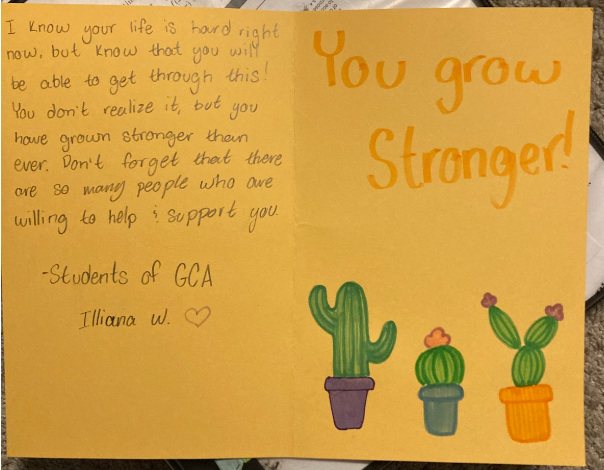 I know your life is hard right
now, but know that you will
be able to get through this!
You don't realize it, but you
have grown stronger than
ever. Don't forget that there
are so many people who are
willing to help & support you.
-Students of GCA
Illiana W. ♡
You grow
Stronger!